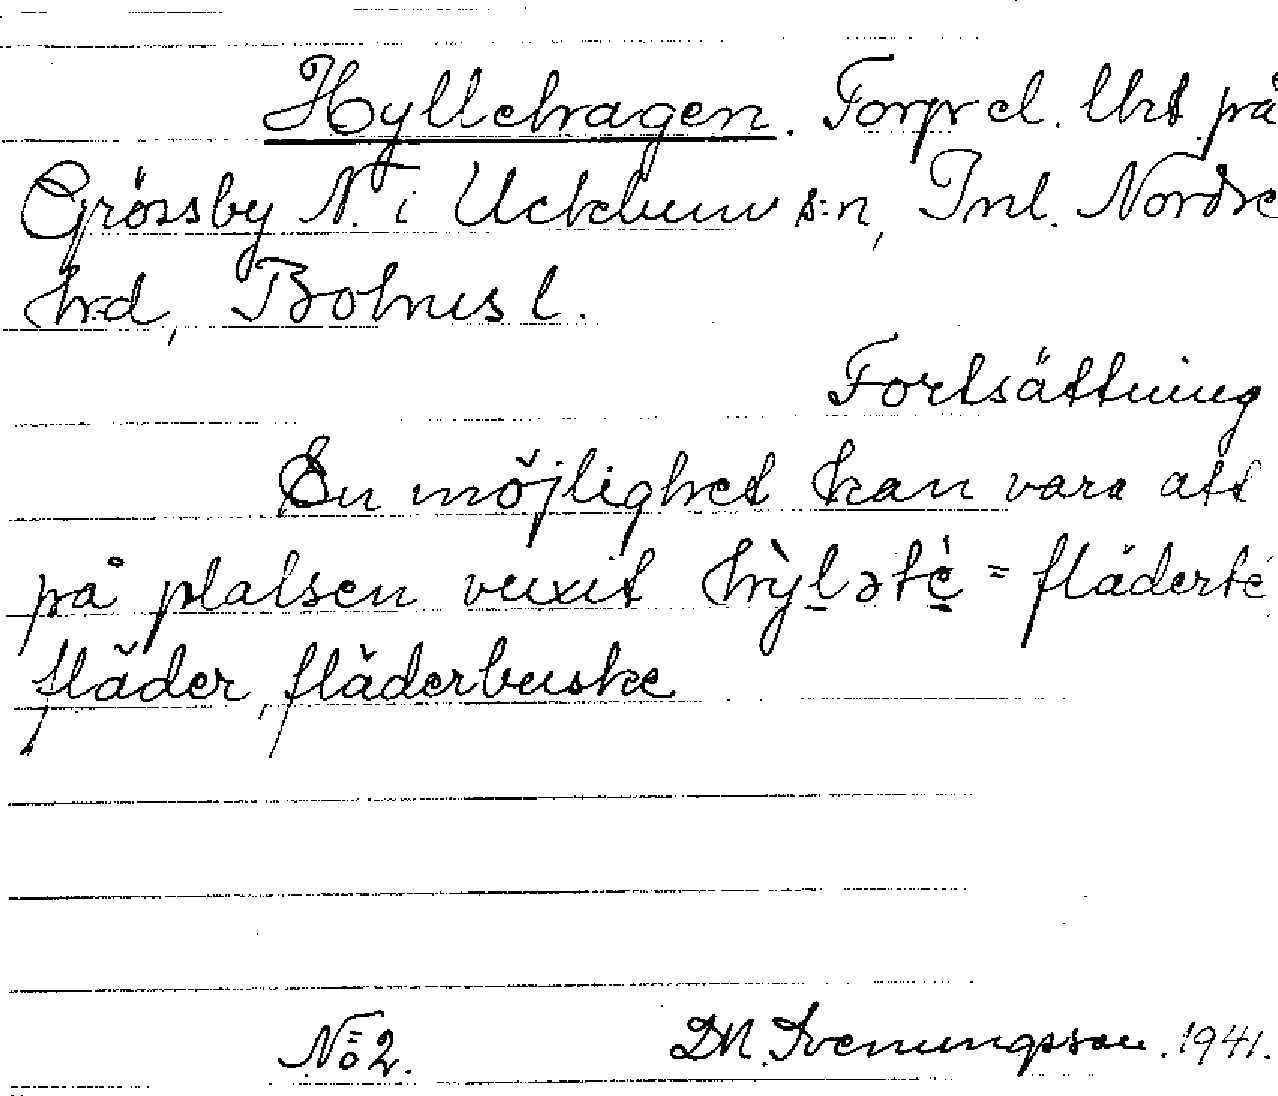 Hyllehagen. Torp el. lht på
Grössby N. i Ucklum s:n, Inl. Nordre
h:d, Bohusl.
Fortsättning
En möjlighet kan vara att
på platsen vuxit hỳl̲ətė̲ = fläderté
fläder, fläderbuske
No 2. D.N. Svenungsson. 1941.